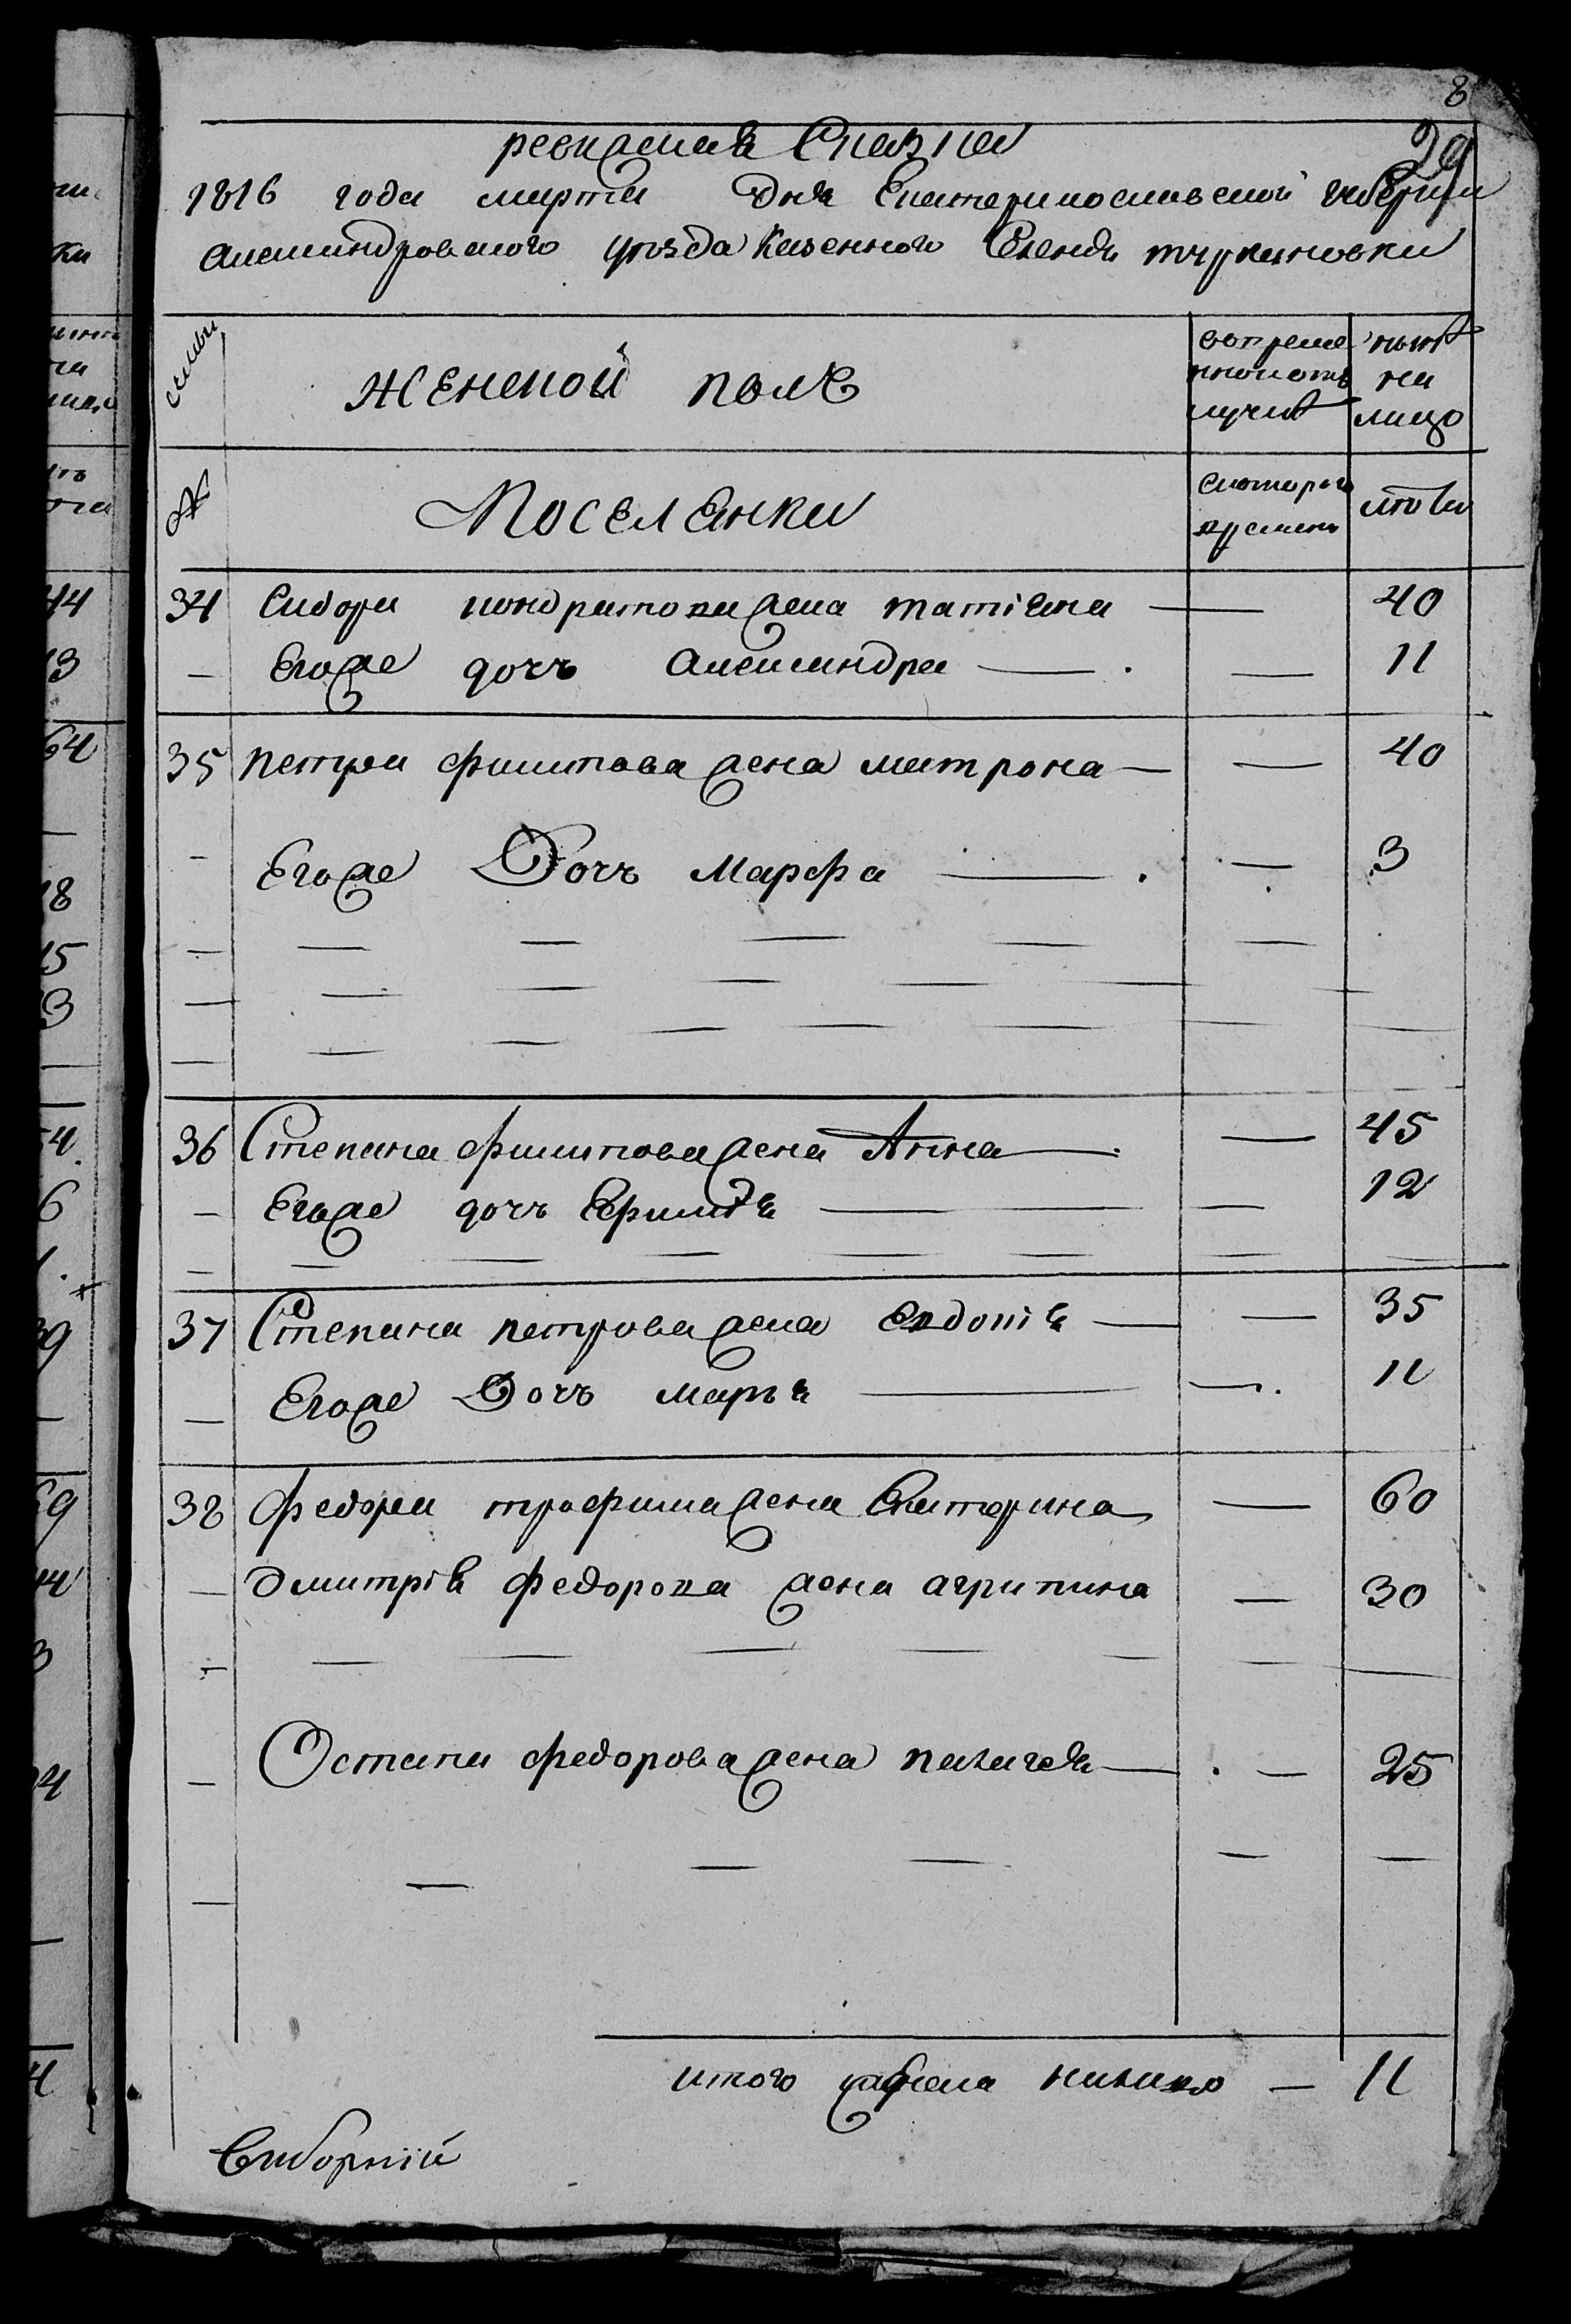 8
29
ревизская Сказка
1816 года марта дня Екатеринославской губернии
александровского уезда казенного Селения туркиновки
семьи
женской полъ
вовреме
нной отъ
лучке
ныне
на
лицо
№
Поселянки
с которого
времени
лета
34 Сидора кондратова жена татияна — 40
— Егоже дочь александра — — 11
35 петра филипова жена матрона — — 40
— Егоже Дочь Марфа — — 3
36 Степана филипова жена Анна — — 45
— Егоже дочь Ефимия — — 12
37 Степана петрова жена Евдокия — — 35
— Егоже Дочь марья — — 11
38 федора трофима жена Екатерина — 60
— дмитрия федорова жена агрипина — 30
— Остапа федорова жена палагея — — 25
итого женска налицо — 11
Виборний